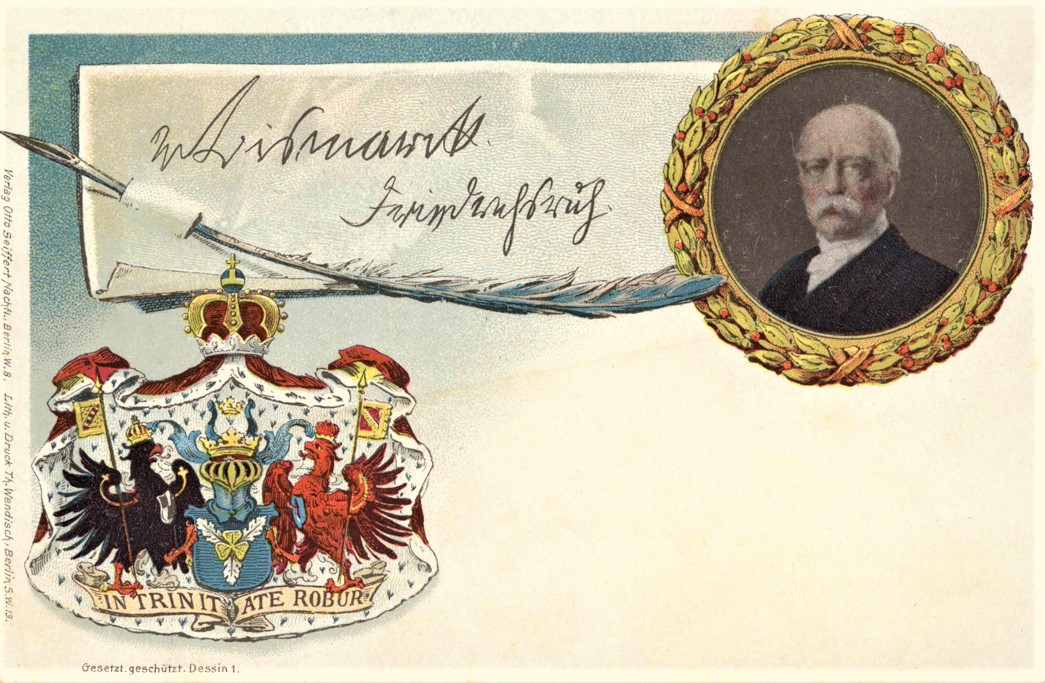 v Bismarck.
Friedrichsruh.
IN TRINITATE ROBUR
Verlag Otto Seiffert Nachfl., Berlin W. 8. Lith. u. Druck Th. Wendisch, Berlin S.W. 13.
Gesetzt. geschützt. Dessin 1.